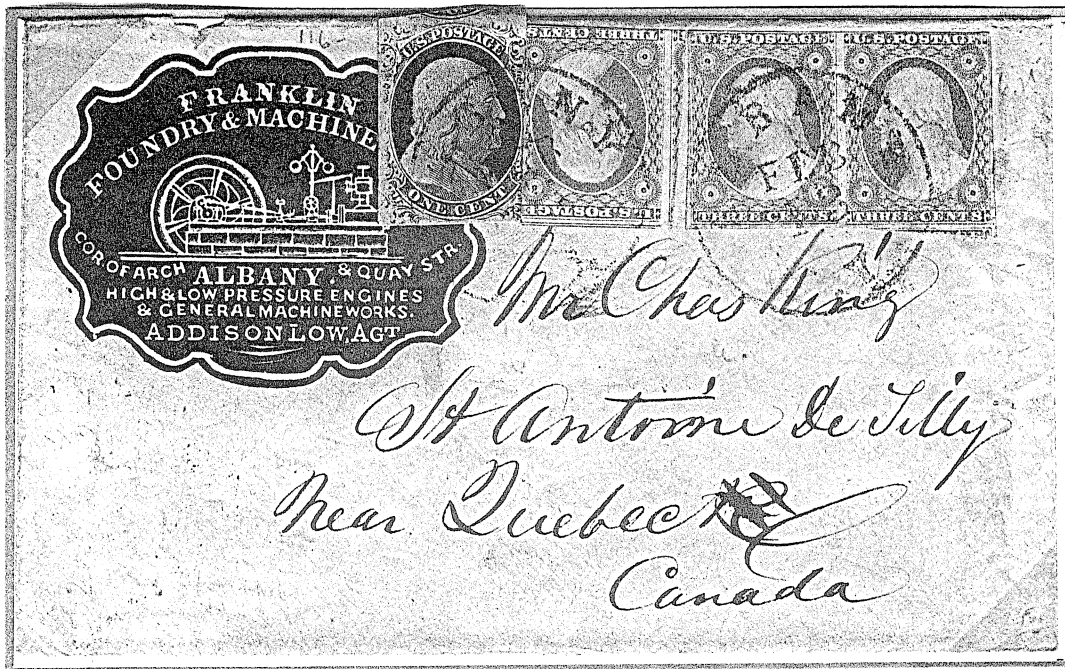 116
FRANKLIN
FOUNDRY & MACHINE
COR OF ARCH & QUAY STR.
ALBANY.
HIGH & LOW PRESSURE ENGINES
& GENERAL MACHINE WORKS.
ADDISON LOW, AGT
U.S. POSTAGE
ONE CENT
U.S. POSTAGE
THREE CENTS
U.S. POSTAGE
THREE CENTS
U.S. POSTAGE
THREE CENTS
N.Y.
FEB
Mr Chas King
St Antoine De Tilly
Near Quebec
Canada